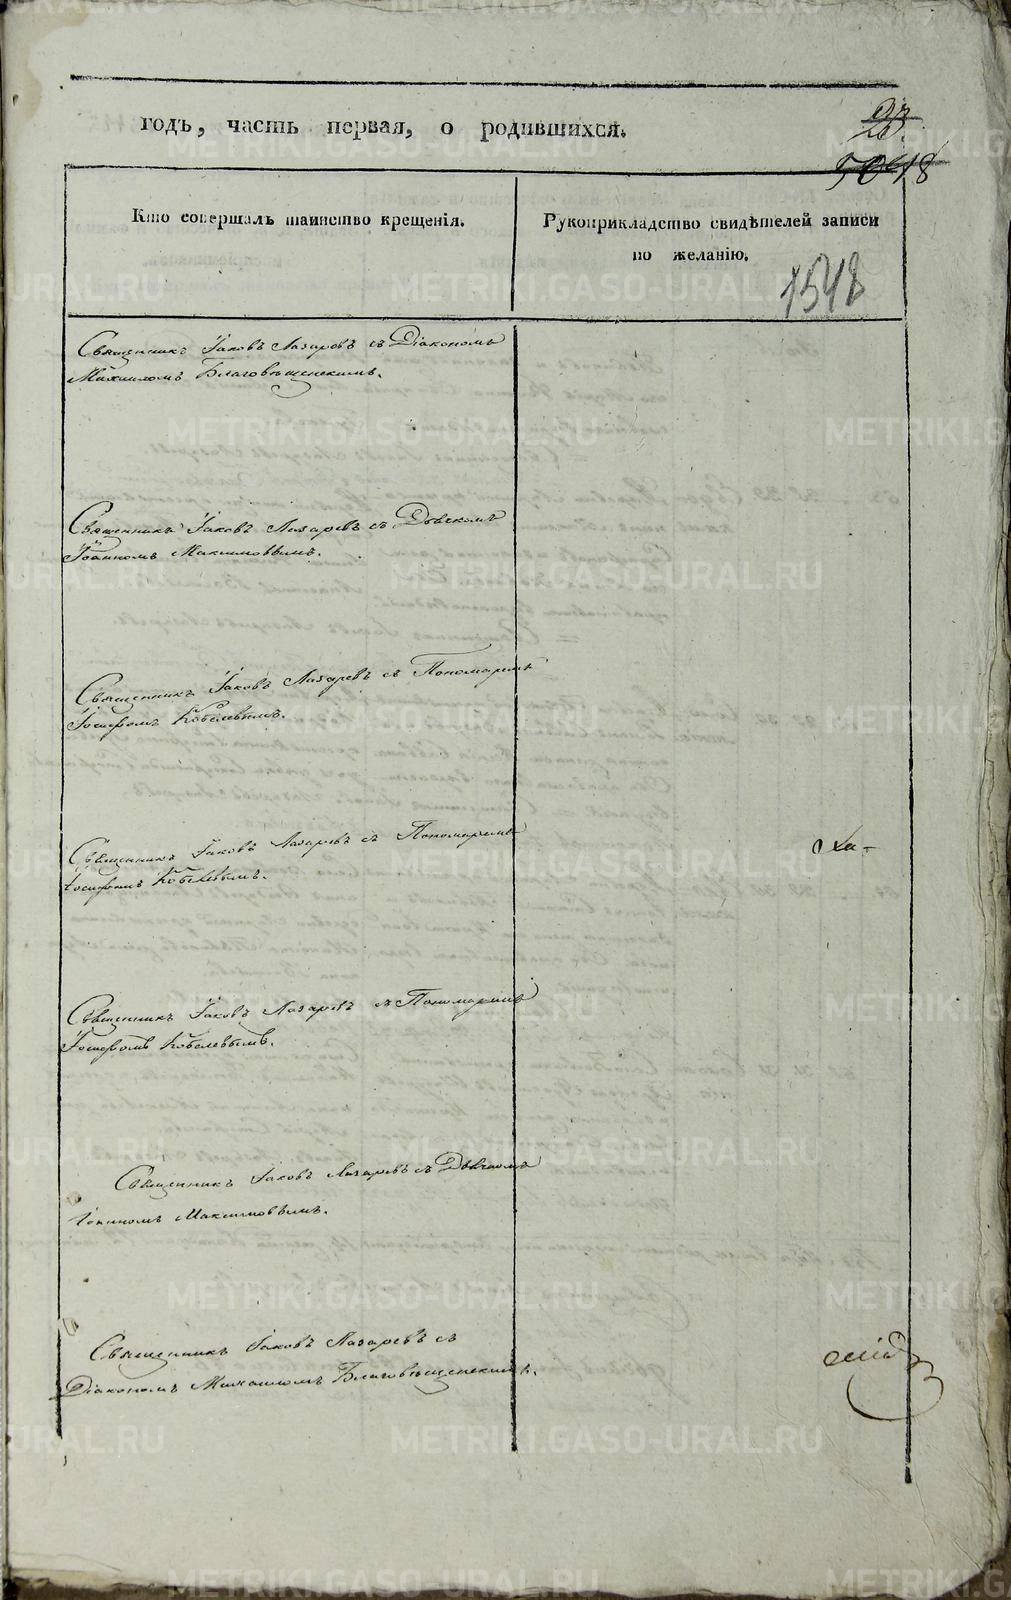 годъ, часть первая, о родившихся.
1548
Кто совершалъ таинство крещенія.
Рукоприкладство свидѣтелей записи
по желанію.
Священникъ Іаковъ Лазаревъ съ Діакономъ
Михаиломъ Благовѣщенскимъ.
Священникъ Іаковъ Лазаревъ съ Дьячкомъ
Іоанномъ Максимовымъ.
Священникъ Іаковъ Лазаревъ съ Пономаремъ
Іосифомъ Кобелевымъ.
Священникъ Іаковъ Лазаревъ съ Пономаремъ
Іосифомъ Кобелевымъ.
Священникъ Іаковъ Лазаревъ съ Пономаремъ
Іосифомъ Кобелевымъ.
Священникъ Іаковъ Лазаревъ съ Дьячкомъ
Іоанномъ Максимовымъ.
Священникъ Іаковъ Лазаревъ съ
Діакономъ Михаиломъ Благовѣщенскимъ.
METRIKI.GASO-URAL.RU